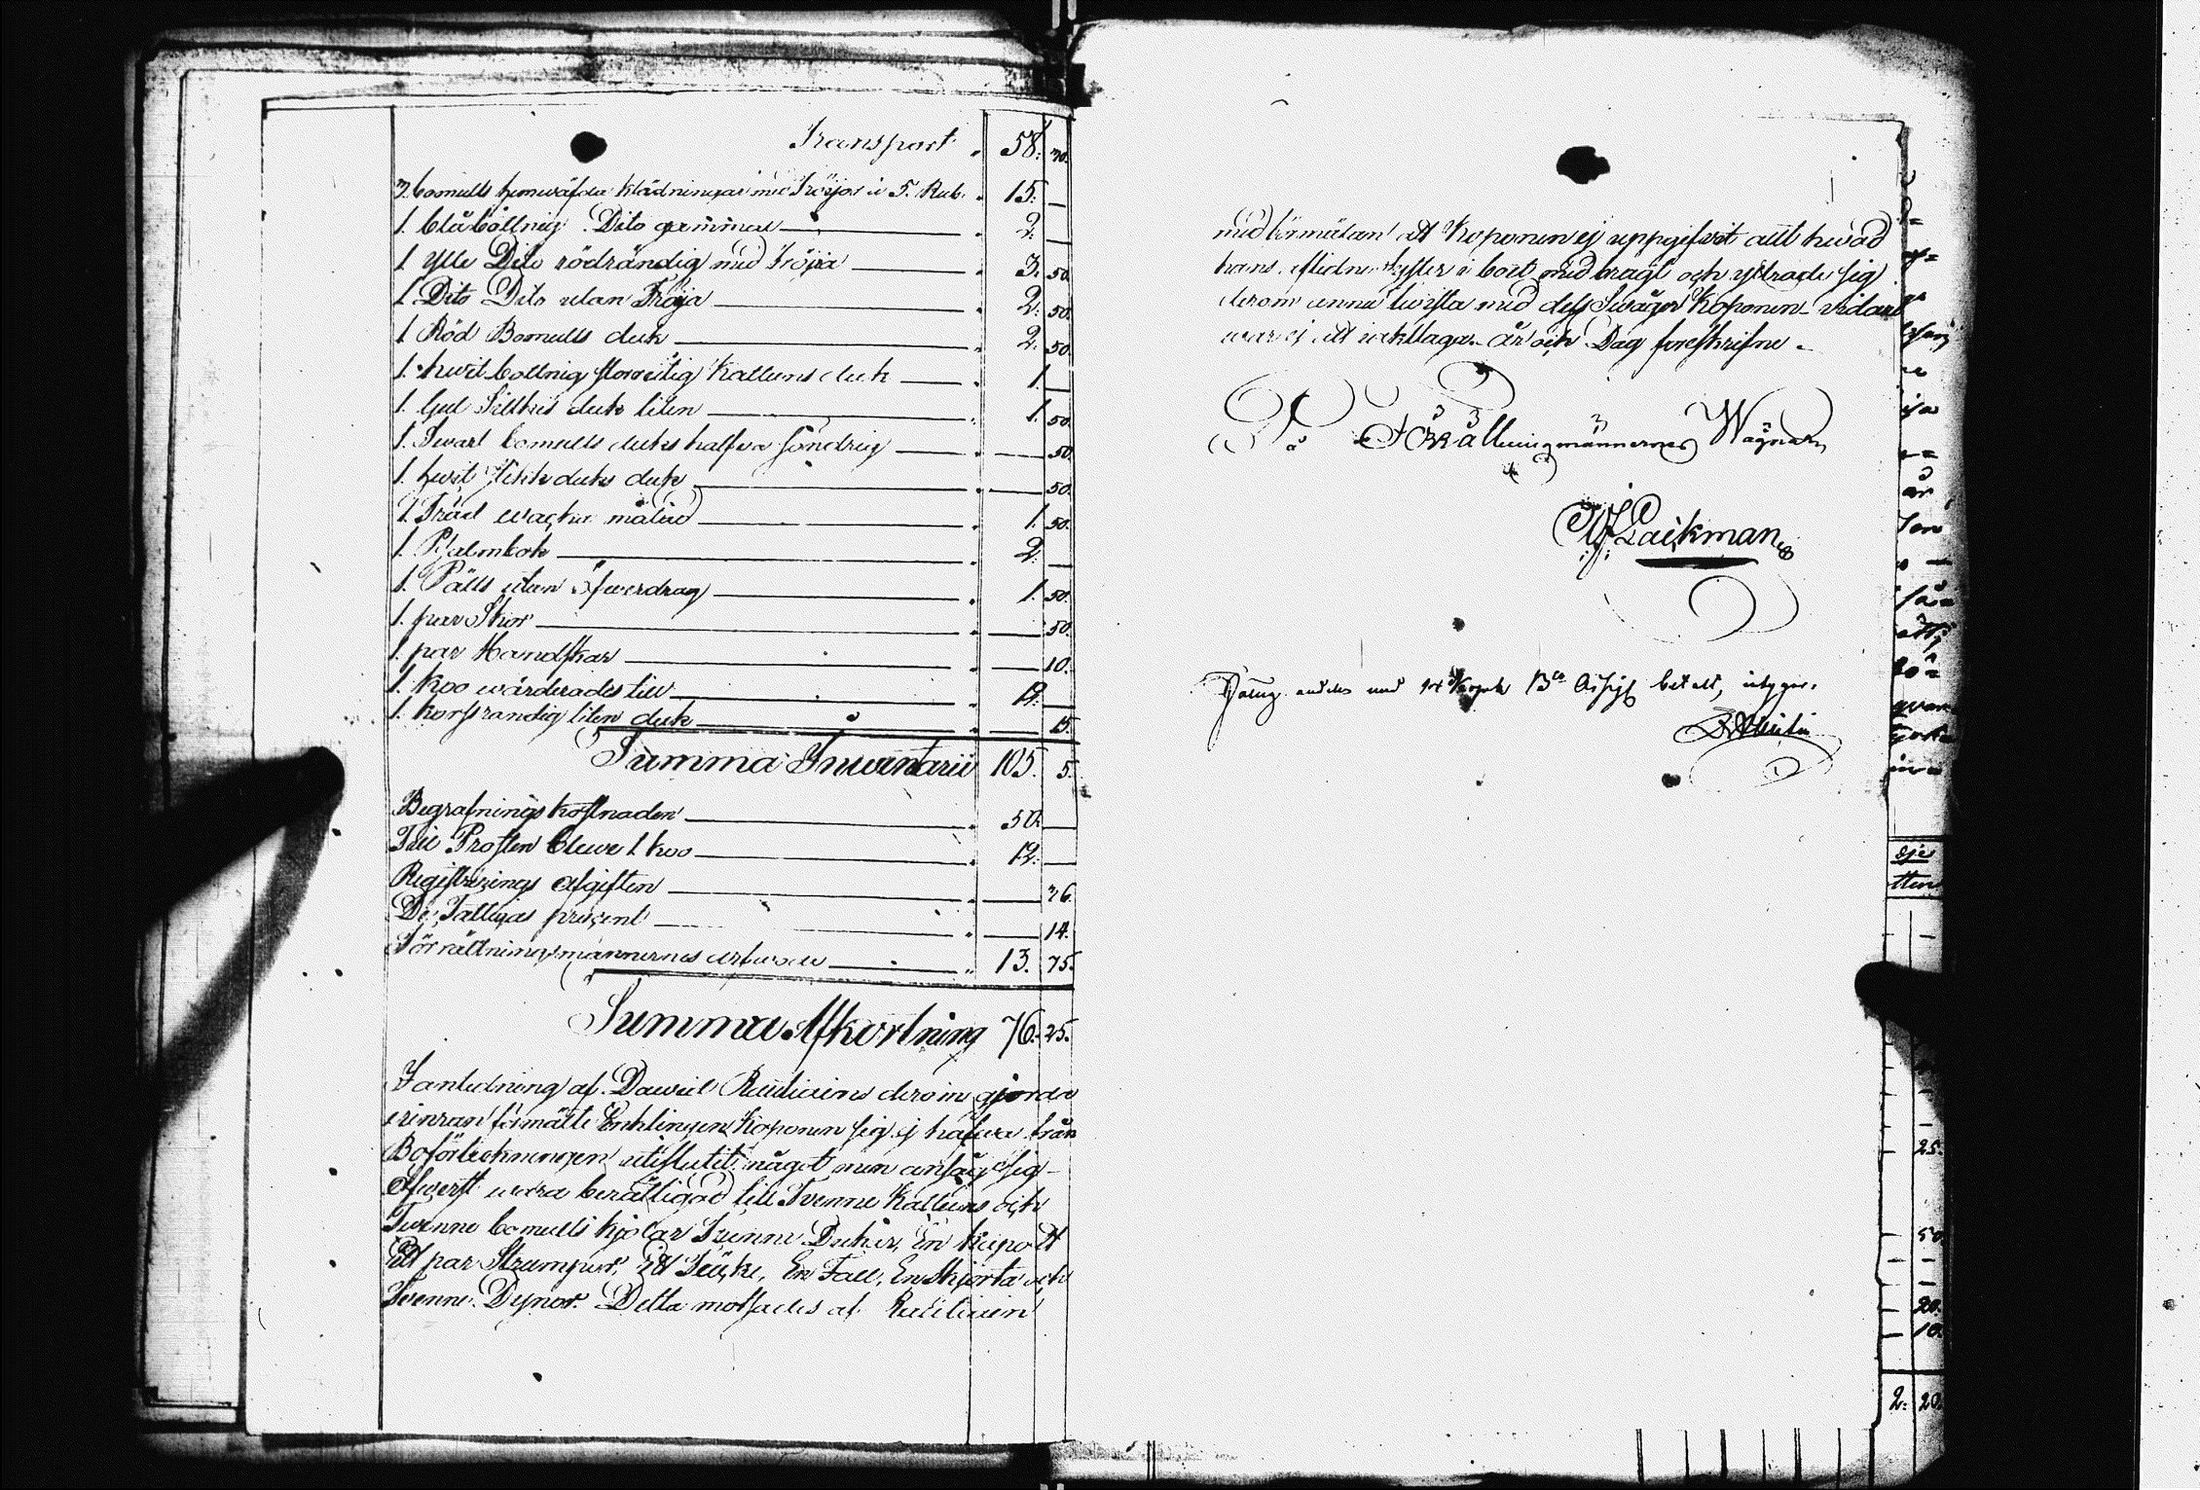 Transport „ 58. 70.
3. bomulls hemwäfda klädningar med Tröijor à 5. Rub. „ 15. —
1. blåbottnig Dito gammal „ 2. —
1. ylle Dito rödrändig med Tröija „ 3. 50.
1. Dito Dito utan Tröija „ 2. 50.
1. Röd Bomulls duk „ 2. 50.
1. hwit bottnig storrutig Kattuns duk „ 1. —
1. Gul Silkis duk liten „ 1. 50.
1. Swart bomulls duks halfwa söndrig „ — 50.
1. hwit duks duk „ — 50.
1. Träd målad „ 1. 50.
1. Psalmbok „ 2. —
1. Päls utan öfwerdrag „ 1. 50.
1. par Skor „ — 50.
1. par Handskar „ — 10.
1. Koo wärderades till „ 12. —
1. korsrandig liten duk „ — 15.
Summa Inwentarii 105. 5.
Begrafnings kostnaden „ 50. —
Till Prosten blewe 1 koo „ 12. —
Registrerings afgiften „ — 36.
De Fattigas procent „ — 14.
Förrättningsmännernes arfwode „ 13. 75.
Summa Afkortning 76. 25.
I anledning af Dawid derom gjorde
erinran förmälte Enklingen Koponen sig ej hafwa från
Boförteckningen uteslutit något men ansåg sig
Öfwerst wara berättigad till Twenne Kattuns och
Twenne bomulls kjolar Twenne Dukar, En kapott
Ett par Strumpor, Ett Täcke, En Fall, En Skjorta och
Twenne Dynor. Detta motsades af
med förmälan att Koponen ej uppgifwit allt hwad
hans aflidne Syster i boet medbragt och yttrade sig
derom ännu twista med dess Swåger Koponen. widare
war ej att iakttaga. År och Dag föreskrifne.
På Förrättningsmännernes Wägnar
Laikman
andes med 14 Kopek Bco Assign betalt, intygar.